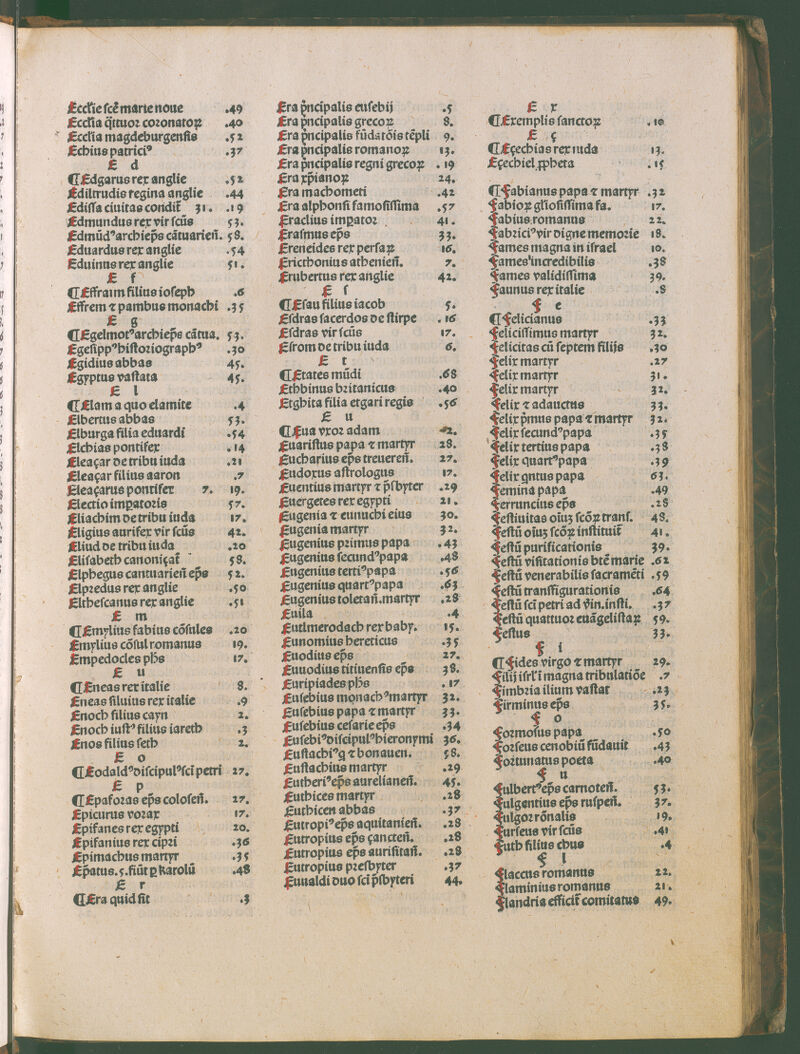 Eccl'ie sc̄e marie noue .49
Eccl'ia q̈ttuoꝛ coꝛonatoꝝ .40
Eccl'ia magdeburgensis .52
Echius patriciꝰ .37
E d
¶ Edgarus rex anglie .52
Ediltrudis regina anglie .44
Edissa ciuitas condit᷑ 31. .19
Edmundus rex vir sc̄us 53.
Edmūdꝰ archiep̄s cātuarien̄. 58.
Eduardus rex anglie .54
Eduinus rex anglie 51.
E f
¶ Effraim filius ioseph .6
Effrem ⁊ pambus monachi .35
E g
¶ Egelmotꝰ archiep̄s cātua. 53.
Egesippꝰ histoꝛiographꝰ .30
Egidius abbas 45.
Egyptus vastata 45.
E l
¶ Elam a quo elamite .4
Elbertus abbas 53.
Elburga filia eduardi .54
Elchias pontifex .14
Eleaçar de tribu iuda .21
Eleaçar filius aaron .7
Eleaçarus pontifex 7. 19.
Electio impatoꝛis 57.
Eliachim de tribu iuda 17.
Eligius aurifex vir sc̄us 42.
Eliud de tribu iuda .20
Elisabeth canoniçat᷑ 58.
Elphegus cantuarien̄ ep̄s 52.
Elpꝛedus rex anglie .50
Elthescanus rex anglie .51
E m
¶ Emylius fabius cōsules .20
Emylius cōsul romanus 19.
Empedocles ph̄s 17.
E u
¶ Eneas rex italie 8.
Eneas siluius rex italie .9
Enoch filius cayn 2.
Enoch iustꝰ filius iareth .3
Enos filius seth 2.
E o
¶ Eodaldꝰ discipulꝰ sc̄i petri 27.
E p
¶ Epafoꝛas ep̄s colosen̄. 27.
Epicurus voꝛax 17.
Epifanes rex egypti 20.
Epifanius rex cipꝛi .36
Epimachus martyr .35
Ep̄atus .5. fiūt ꝑ karolū .48
E r
¶ Era quid sit .3
Era p̄ncipalis eusebij .5
Era p̄ncipalis grecoꝝ 8.
Era p̄ncipalis fūdatōis tēpli 9.
Era p̄ncipalis romanoꝝ 13.
Era p̄ncipalis regni grecoꝝ .19
Era xp̄ianoꝝ 24.
Era machometi .42
Era alphonsi famosissima .57
Eraclius impatoꝛ . 41.
Erasmus ep̄s 33.
Ereneides rex persaꝝ 16.
Ericthonius athenien̄. 7.
Erubertus rex anglie 42.
E s
¶ Esau filius iacob 5.
Esdras sacerdos de stirpe .16
Esdras vir sc̄us 17.
Esrom de tribu iuda 6.
E t
¶ Etates mūdi .68
Ethbinus bꝛitanicus .40
Etghita filia etgari regis .56
E u
¶ Eua vxoꝛ adam 2.
Euaristus papa ⁊ martyr 28.
Eucharius ep̄s treueren̄. 27.
Eudoxus astrologus 17.
Euentius martyr ⁊ p̄sbyter .29
Euergetes rex egypti 21.
Eugenia ⁊ eunuchi eius 30.
Eugenia martyr 32.
Eugenius pꝛimus papa .43
Eugenius secundꝰ papa .48
Eugenius tertiꝰ papa .56
Eugenius quartꝰ papa .63
Eugenius toletan̄. martyr .28
Euila .4
Euilmerodach rex baby. 15.
Eunomius hereticus .35
Euodius ep̄s 27.
Euuodius titiuensis ep̄s 38.
Euripiades ph̄s .17
Eusebius monachꝰ martyr 32.
Eusebius papa ⁊ martyr 33.
Eusebius cesarie ep̄s .34
Eusebiꝰ discipulꝰ hieronymi 36.
Eustachiꝰ q ⁊ bonauen. 58.
Eustachius martyr .29
Eutheriꝰ ep̄s aurelianen̄. 45.
Euthices martyr .28
Euthicen abbas .37
Eutropiꝰ ep̄s aquitanien̄. .28
Eutropius ep̄s çancten̄. .28
Eutropius ep̄s aurisitan̄. .28
Eutropius pꝛesbyter .37
Euualdi duo sc̄i p̄sbyteri 44.
E x
¶ Exemplis sanctoꝝ .10
E ç
¶ Eçechias rex iuda 13.
Eçechiel ꝓpheta .15
¶ Fabianus papa ⁊ martyr .32
Fabioꝝ gl'iosissima fa. 17.
Fabius romanus 22.
Fabꝛiciꝰ vir digne memoꝛie 18.
Fames magna in israel 10.
Fames incredibilis .38
Fames validissima 39.
Faunus rex italie .8
F e
¶ Felicianus .33
Felicissimus martyr 32.
Felicitas cū septem filijs .30
Felix martyr .27
Felix martyr 31.
Felix martyr 32.
Felix ⁊ adauctus 33.
Felix p̄mus papa ⁊ martyr 32.
Felix secundꝰ papa .35
Felix tertius papa .38
Felix quartꝰ papa .39
Felix qntus papa 63.
Femina papa .49
Ferruncius ep̄s .28
Festiuitas oīuꝫ sc̄oꝝ transl. 48.
Festū oīuꝫ sc̄oꝝ instituit᷑ 41.
Festū purificationis 39.
Festū visitationis bt̄e marie .62
Festū venerabilis sacramēti .59
Festū transfigurationis .64
Festū sc̄i petri ad vin. insti. .37
Festū quattuoꝛ euāgelistaꝝ 59.
Festus 33.
F i
¶ Fides virgo ⁊ martyr 29.
Filij isrl'i magna tribulatiōe .7
Fimbꝛia ilium vastat .23
Firminus ep̄s 35.
F o
Foꝛmosus papa .50
Foꝛseus cenobiū fūdauit .43
Foꝛtunatus poeta .40
F u
Fulbertꝰ ep̄s carnoten̄. 53.
Fulgentius ep̄s ruspen̄. 37.
Fulgoꝛ rōnalis 19.
Furseus vir sc̄us .41
Futh filius chus .4
F l
Flaccus romanus 22.
Flaminius romanus 21.
Flandria efficit᷑ comitatus 49.